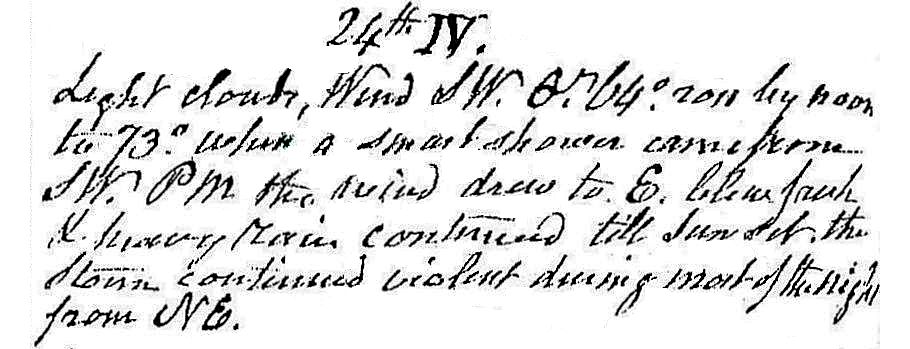 24th IV.
Light clouds, Wind SW. Θr. 64° ros by noon
to 73° when a smart shower came from
SW. PM the wind drew to E. blew fresh
& heavy rain continued till Sun set. the
storm continued violent during most of the night
from NE.